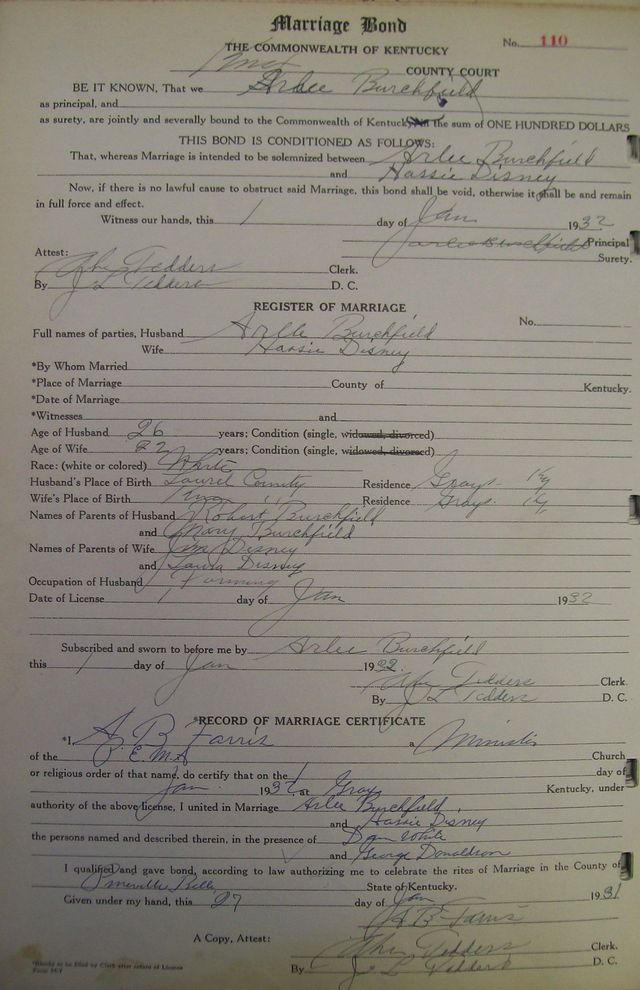 Marriage Bond
THE COMMONWEALTH OF KENTUCKY
No. 110
Knox COUNTY COURT
BE IT KNOWN, That we Arlee Burchfield
as principal, and
as surety, are jointly and severally bound to the Commonwealth of Kentucky, in the sum of ONE HUNDRED DOLLARS
THIS BOND IS CONDITIONED AS FOLLOWS:
That, whereas Marriage is intended to be solemnized between Arlee Burchfield
and Hassie Disney
Now, if there is no lawful cause to obstruct said Marriage, this bond shall be void, otherwise it shall be and remain
in full force and effect.
Witness our hands, this 1 day of Jan 1932
Arlee Burchfield Principal
Surety.
Attest:
Abe Tedders Clerk.
By J L Tedders D. C.
REGISTER OF MARRIAGE
No.
Full names of parties, Husband Arlee Burchfield
Wife Hassie Disney
*By Whom Married
*Place of Marriage County of Kentucky.
*Date of Marriage
*Witnesses and
Age of Husband 26 years; Condition (single, widowed, divorced)
Age of Wife 22 years; Condition (single, widowed, divorced)
Race: (white or colored) White
Husband's Place of Birth Laurel County Residence Grays Ky
Wife's Place of Birth Knox " " Residence Grays Ky
Names of Parents of Husband Robert Burchfield
and Mary Burchfield
Names of Parents of Wife Jim Disney
and Laura Disney
Occupation of Husband Farming
Date of License 1 day of Jan 1932
Subscribed and sworn to before me by Arlee Burchfield
this 1 day of Jan 1932.
Abe Tedders Clerk.
By J L Tedders D. C.
*RECORD OF MARRIAGE CERTIFICATE
*I, A B Farris a Minister
of the Church
or religious order of that name, do certify that on the 1 day of
Jan. 1932 at Gray Kentucky, under
authority of the above license, I united in Marriage Arlee Burchfield
and Hassie Disney
the persons named and described therein, in the presence of Dan White
and George Donaldson
I qualified and gave bond, according to law authorizing me to celebrate the rites of Marriage in the County of
Pineville Bell State of Kentucky.
Given under my hand, this 27 day of Jan 1931
A B Farris
A Copy, Attest: Abe Tedders Clerk.
By J L Tedders D. C.
*Blanks to be filled by Clerk after return of License